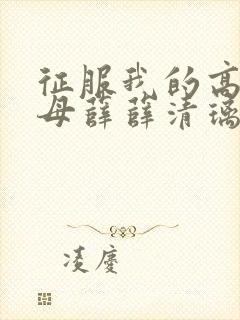 征服我的高
母薛薛清璃
凌慶